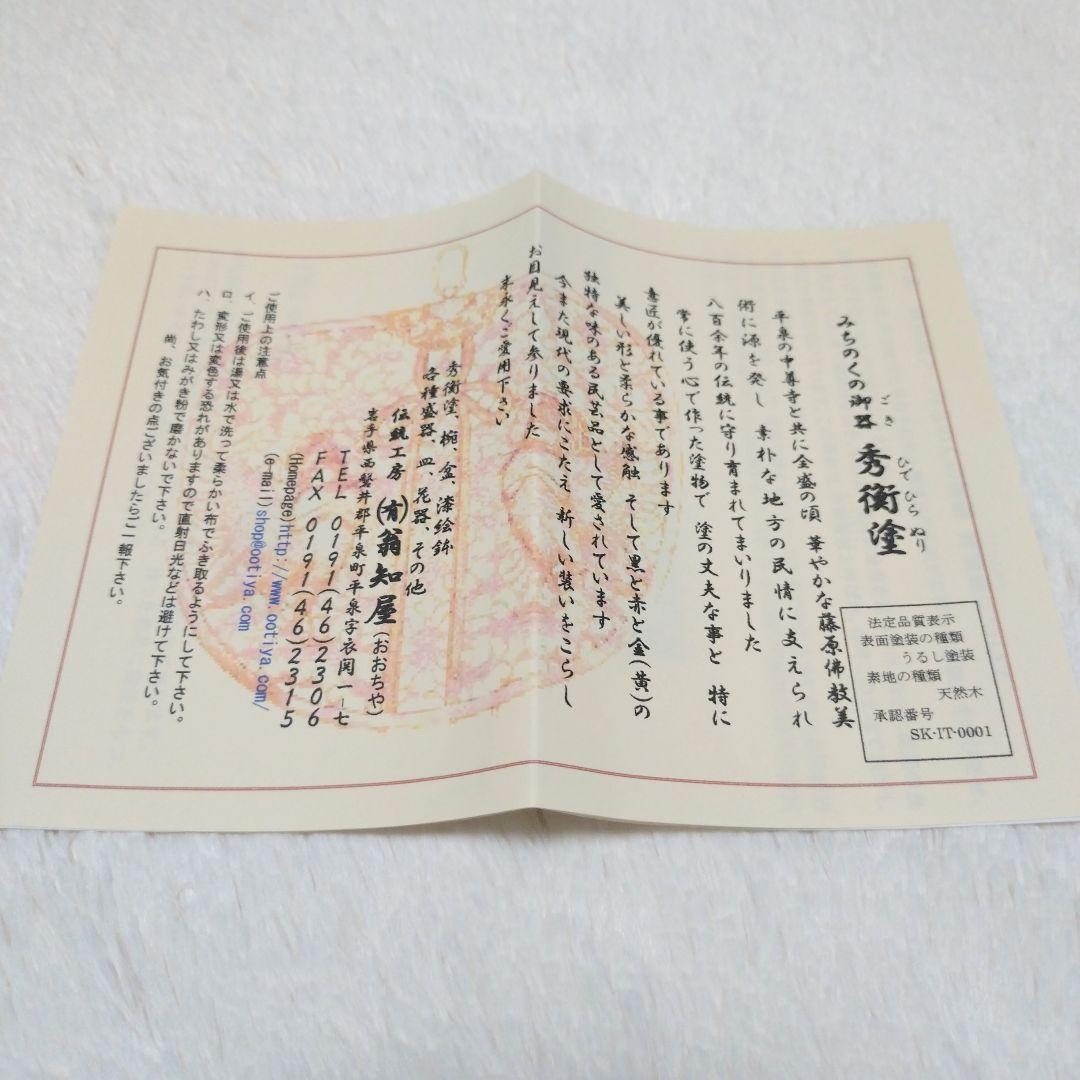 みちのくの御器 秀衡塗
ごき ひでひらぬり
平泉の中尊寺と共に全盛の頃 華やかな藤原佛教美
術に源を発し 素朴な地方の民情に支えられ
八百余年の伝統に守り育まれてまいりました
常に使う心で作った塗物で 塗の丈夫な事と 特に
意匠が優れている事であります
美しい形と柔らかな感触 そして黒と赤と金(黄)の
独特な味のある民芸品として愛されています
今また現代の要求にこたえ 新しい装いをこらし
お目見えして参りました
末永くご愛用下さい
法定品質表示
表面塗装の種類
うるし塗装
素地の種類
天然木
承認番号
SK-IT-0001
秀衡塗、椀、盆、漆絵鉢
各種盛器、皿、花器、その他
伝統工房 (有)翁知屋(おおちや)
岩手県西磐井郡平泉町平泉字衣関一−七
TEL 0191(46)2306
FAX 0191(46)2315
(Homepage)http://www.ootiya.com/
(e-mail)shop@ootiya.com
ご使用上の注意点
イ、ご使用後は湯又は水で洗って柔らかい布でふき取るようにして下さい。
ロ、変形又は変色する恐れがありますので直射日光などは避けて下さい。
ハ、たわし又はみがき粉で磨かないで下さい。
尚、お気付きの点ございましたらご一報下さい。